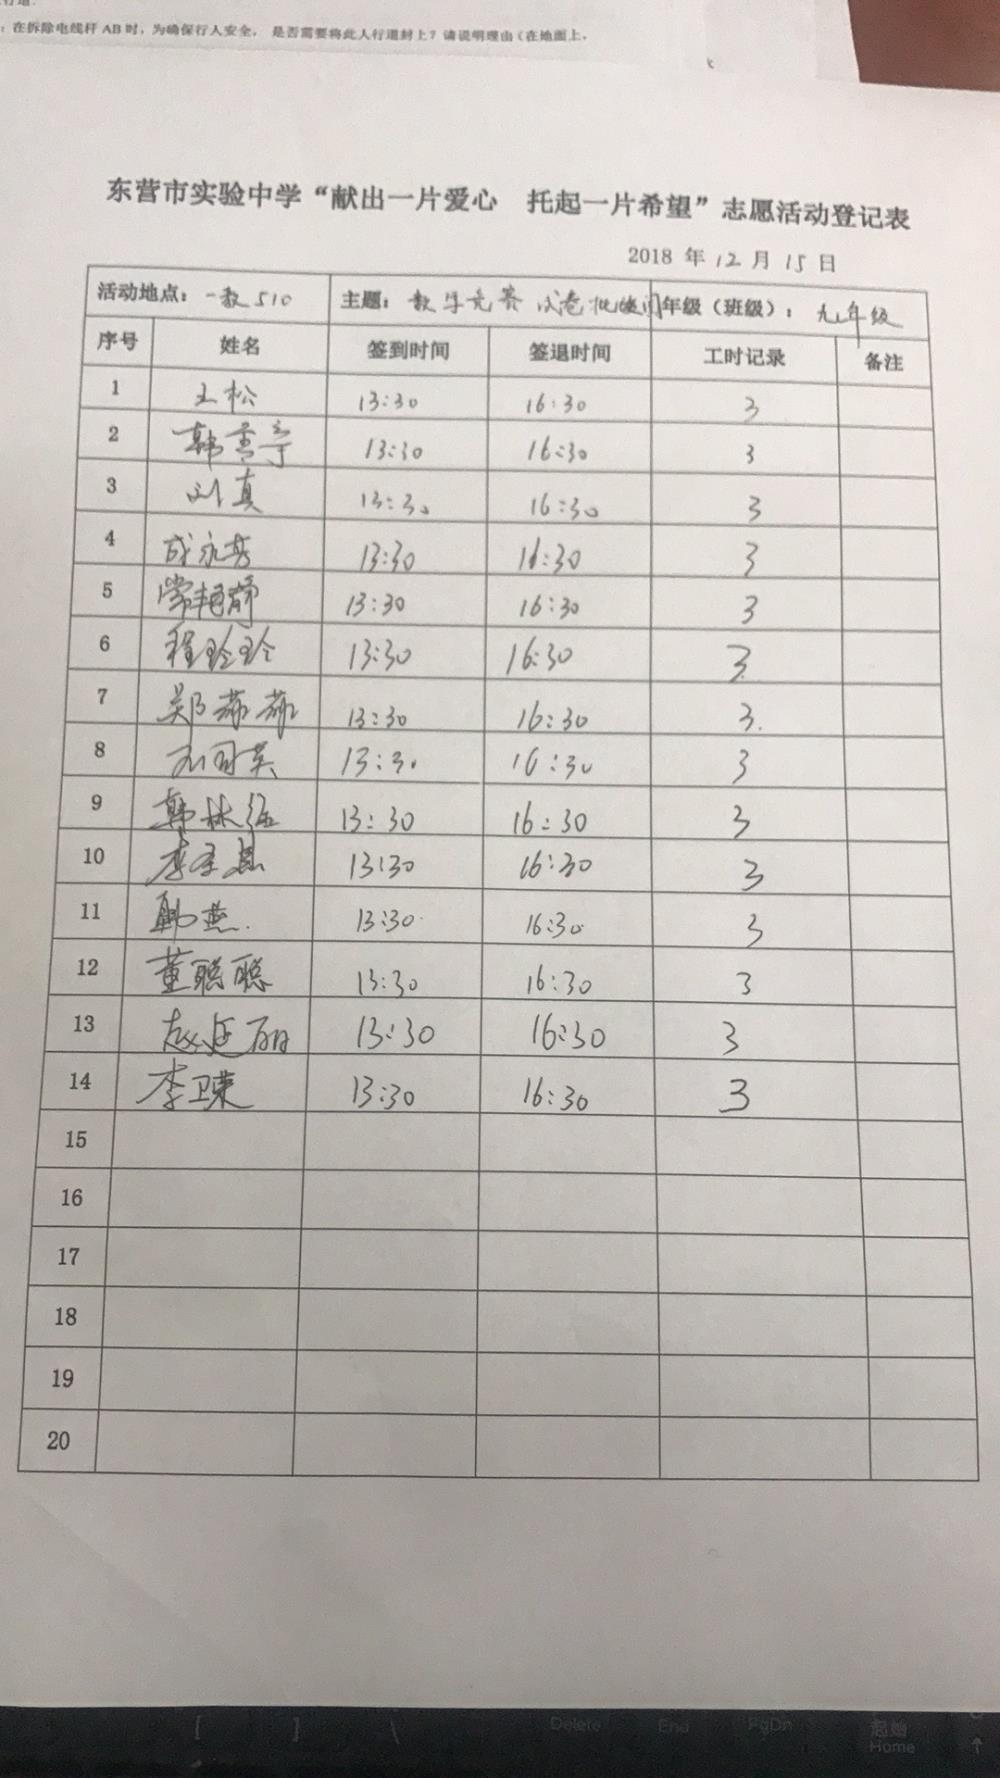 ：在拆除电线杆 AB 时，为确保行人安全， 是否需要将此人行道封上？请说明理由（在地面上，
东营市实验中学“献出一片爱心 托起一片希望”志愿活动登记表
2018 年 12 月 15 日
活动地点：一教510 主题：数学竞赛试卷批阅 年级（班级）：九年级
序号 姓名 签到时间 签退时间 工时记录 备注
1 王松 13:30 16:30 3
2 韩 13:30 16:30 3
3 刘真 13:30 16:30 3
4 成永秀 13:30 16:30 3
5 常艳静 13:30 16:30 3
6 程玲玲 13:30 16:30 3
7 郑 13:30 16:30 3
8 13:30 16:30 3
9 韩林 13:30 16:30 3
10 李 13:30 16:30 3
11 燕 13:30 16:30 3
12 董聪聪 13:30 16:30 3
13 赵延丽 13:30 16:30 3
14 李卫荣 13:30 16:30 3
15
16
17
18
19
20
[ ] \ Delete End PgDn 起始
Home